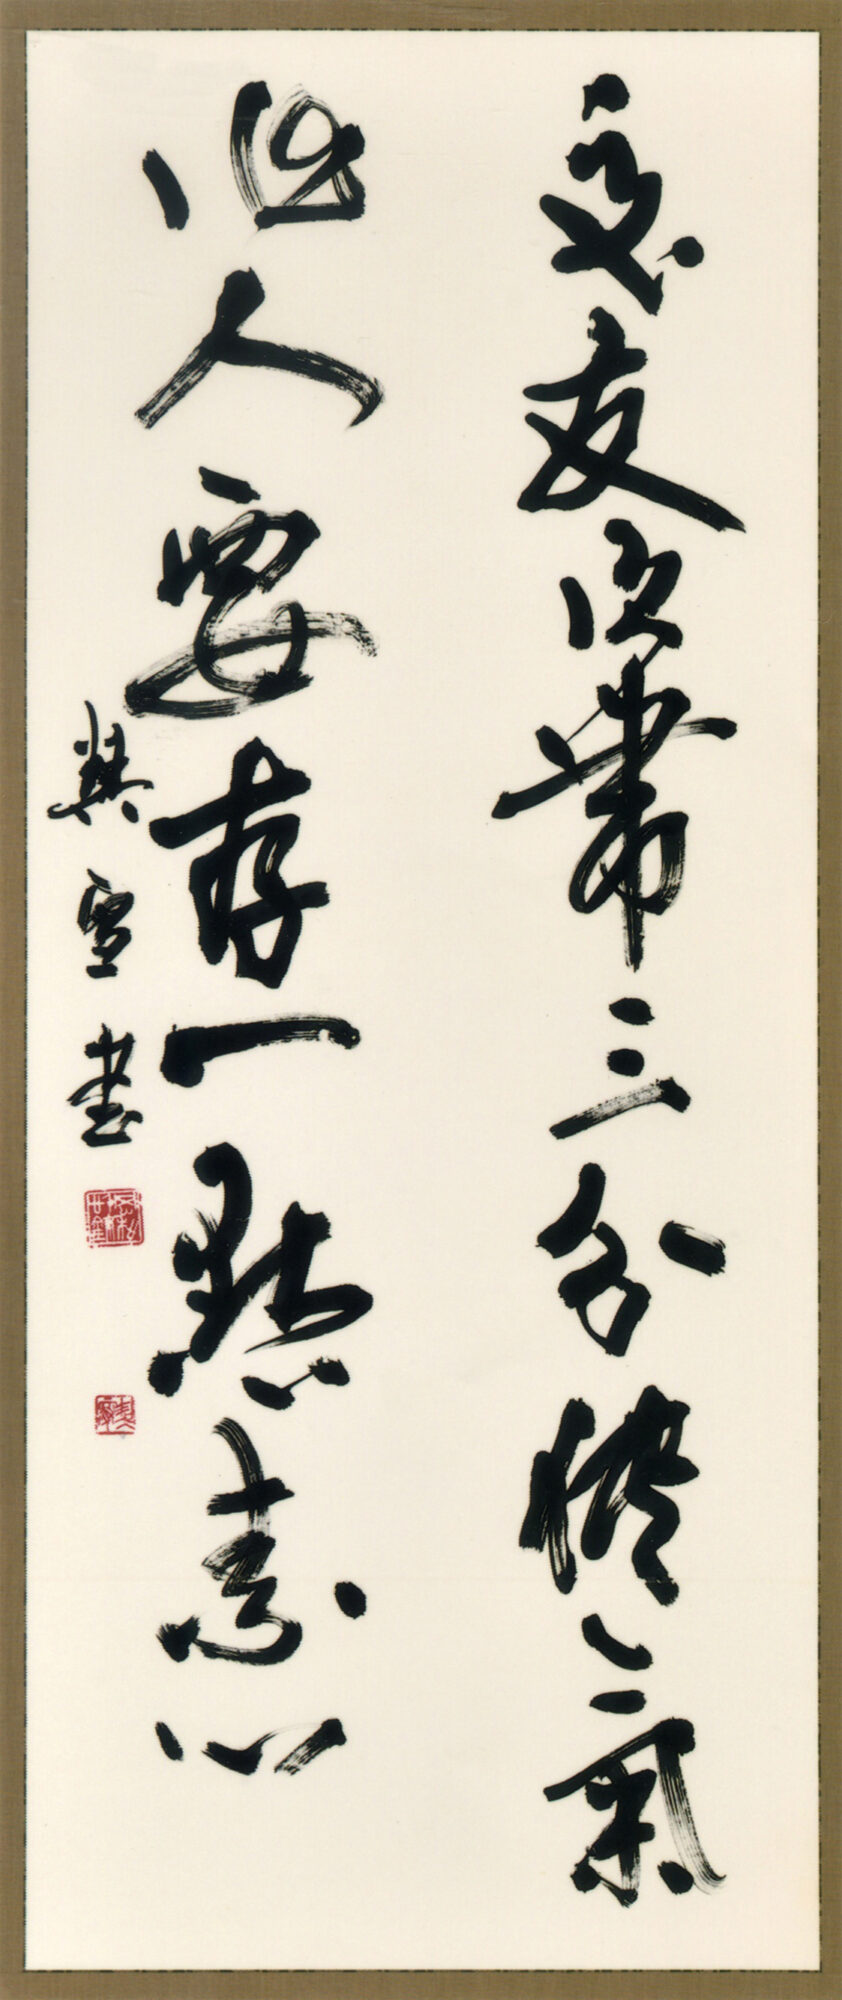 交友須帶三分俠氣
作人要存一點素心
書